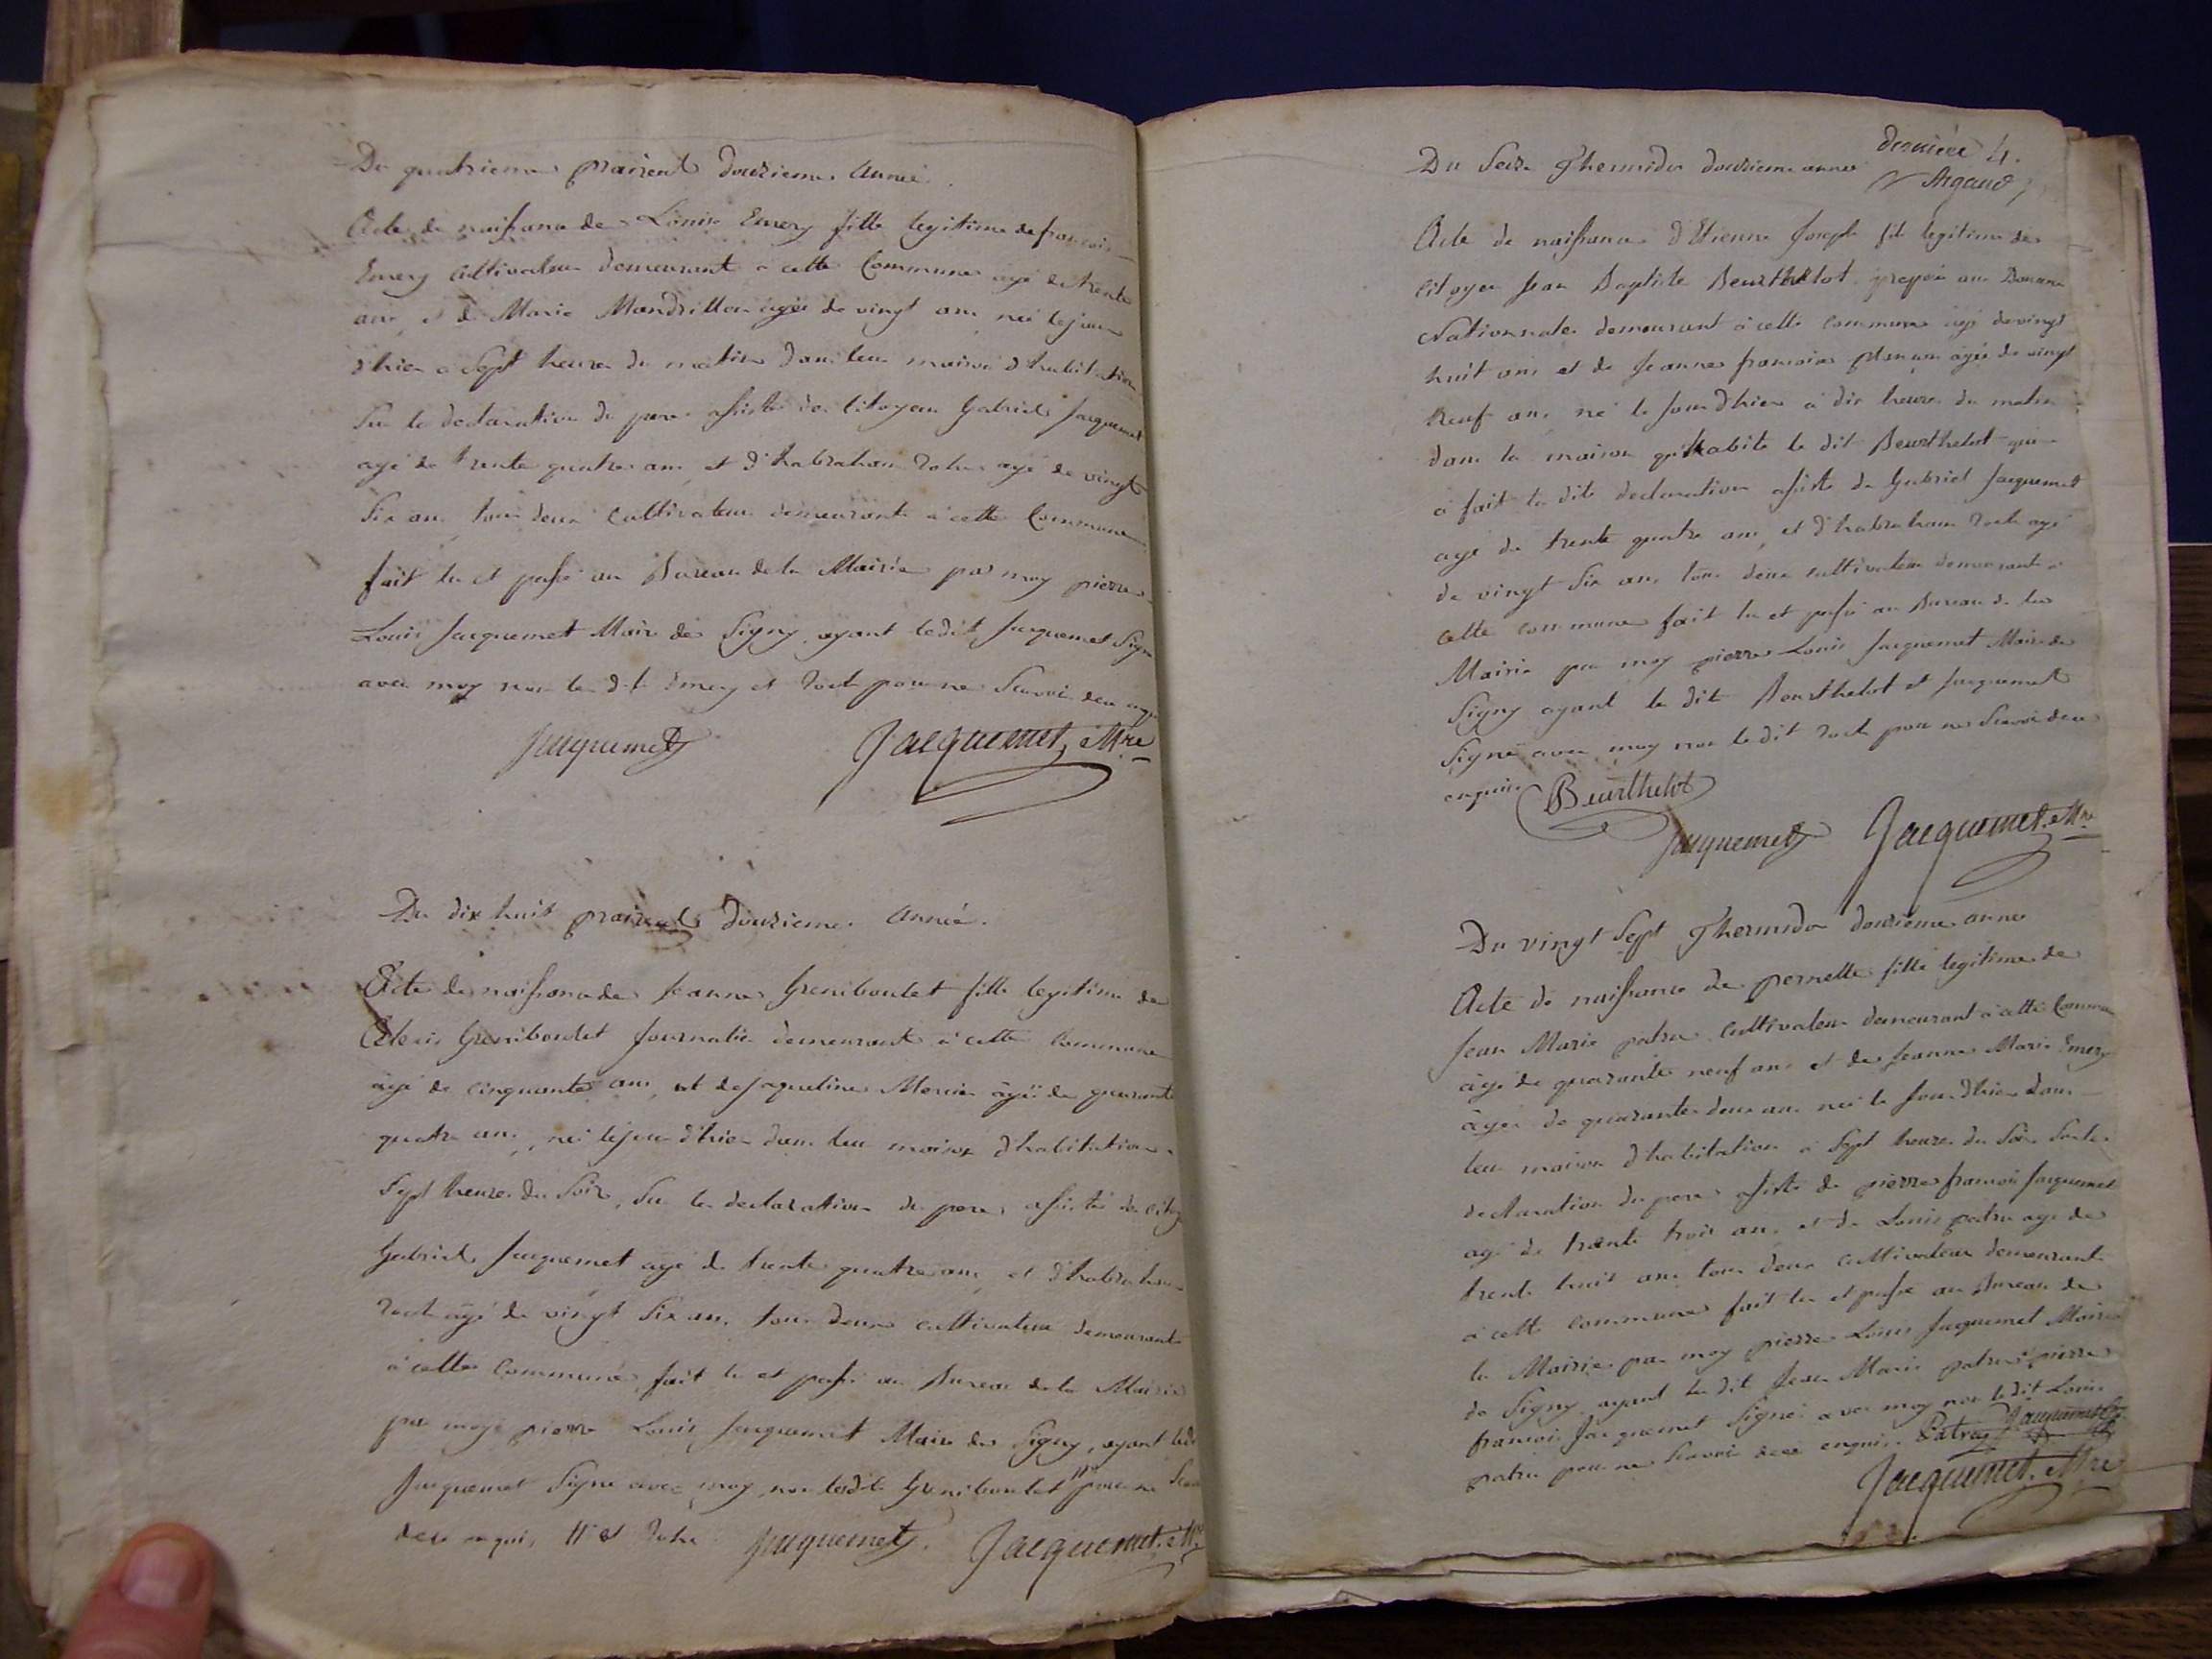 Du quatrieme prairial douzieme année.
Acte de naissance de Louise Emery fille legitime de francois
Emery Cultivateur demeurant à cette Commune agé de trente
ans, et de Marie Mandrillon agée de vingt ans née le jour
d'hier a Sept heures du matin dans leur maison d'habitation
Sur la declaration du pere assisté des Citoyens Gabriel Jacquemet
agé de trente quatre ans et d'habraham agé de vingt
Six ans tous deux Cultivateurs demeurants à cette Commune
fait lu et passé au Bureau de la Mairie par moy pierre
Louis Jacquemet Maire de Signy ayant ledit Jacquemet Signé
avec moy non les dit Emery et pour ne Scavoir de ce
Jacquemet Jacquemet, Mre
Du dix huit prairial douzieme Année.
Acte de naissance de Jeanne Greniboulet fille legitime de
Alexis Greniboulet Journalier demeurant à cette Commune
agé de cinquante ans, et de Jaqueline Mercier agée de quarante
quatre ans, née le jour d'hier dans leur maison d'habitation
Sept heures du Soir, Sur la declaration du pere assisté de
Gabriel Jacquemet agé de trente quatre ans, et d'habraham
agé de vingt Six ans, tous deux cultivateurs demeurants
à cette Commune, fait lu et passé au Bureau de la Mairie
par moy pierre Louis Jacquemet Maire de Signy, ayant ledit
Jacquemet Signé avec moy non ledit Greniboulet pour ne
de ce enquis, Jacquemet. Jacquemet. Mre
derniere 4.
Argaud
Du Seize Thermidor douzieme année
Acte de naissance d'Etienne Joseph fils legitime de
Citoyen Jean Baptiste Beurthelot préposé aux Douane
Nationnale demeurant à cette commune agé de vingt
huit ans et de Jeanne francoise agée de vingt
neuf ans né le Jour d'hier à dix heures du matin
dans la maison qu'habite le dit Beurthelot qui
à fait la dite declaration assisté de Gabriel Jacquemet
agé de trente quatre ans, et d'habraham agé
de vingt Six ans tous deux cultivateurs demeurants à
cette commune fait lu et passé au Bureau de la
Mairie par moy pierre Louis Jacquemet Maire de
Signy ayant le dit Beurthelot et Jacquemet
Signé avec moy non le dit pour ne Scavoir de ce
enquis Beurthelot
Jacquemet Jacquemet. Mre
Du vingt Sept Thermidor douzieme année
Acte de naissance de pernette fille legitime de
Jean Marie patru Cultivateur demeurant à cette Commune
agé de quarante neuf ans et de Jeanne Marie Emery
agée de quarante deux ans née le Jour d'hier dans
leur maison d'habitation à Sept heures du Soir Sur la
declaration du pere assisté de pierre francois Jacquemet
agé de trente trois ans, et de Louis patru agé de
trente huit ans tous deux cultivateurs demeurants
à cette commune fait lu et passé au Bureau de
la Mairie par moy pierre Louis Jacquemet Maire
de Signy ayant le dit Jean Marie patru pierre
francois Jacquemet Signé avec moy non ledit Louis
patru pour ne Scavoir de ce enquis. Patru Jacquemet
Jacquemet. Mre